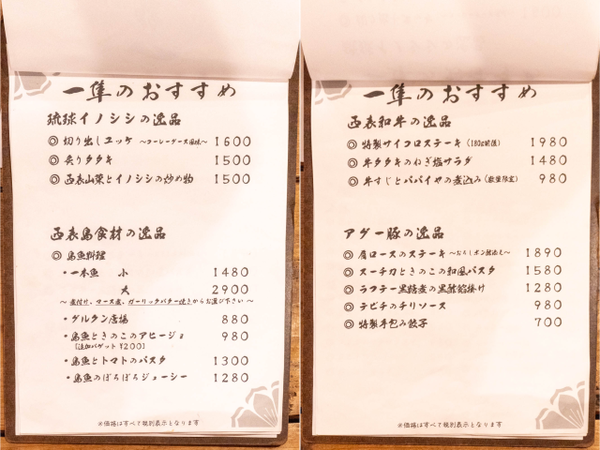 一隼のおすすめ
琉球イノシシの逸品
◎ 切り出しユッケ ～コーレーグース風味～ 1600
◎ 炙りタタキ 1500
◎ 西表山菜とイノシシの炒め物 1500
西表島食材の逸品
◎ 島魚料理
・一本魚 小 1480
大 2900
～ 煮付け、マース煮、ガーリックバター焼きからお選び下さい ～
・グルクン唐揚 880
・島魚ときのこのアヒージョ 980
(追加バゲット ¥200)
・島魚とトマトのパスタ 1300
・島魚のぼろぼろジューシー 1280
※価格はすべて税別表示となります
一隼のおすすめ
西表和牛の逸品
◎ 特製サイコロステーキ (180g前後) 1980
◎ 牛タタキのねぎ塩サラダ 1480
◎ 牛すじとパパイヤの煮込み (数量限定) 980
アグー豚の逸品
◎ 肩ロースのステーキ ～おろしポン酢添え～ 1890
◎ スーチカときのこの和風パスタ 1580
◎ ラフテー黒糖煮の黒酢餡掛け 1280
◎ テビチのチリソース 980
◎ 特製手包み餃子 700
※価格はすべて税別表示となります